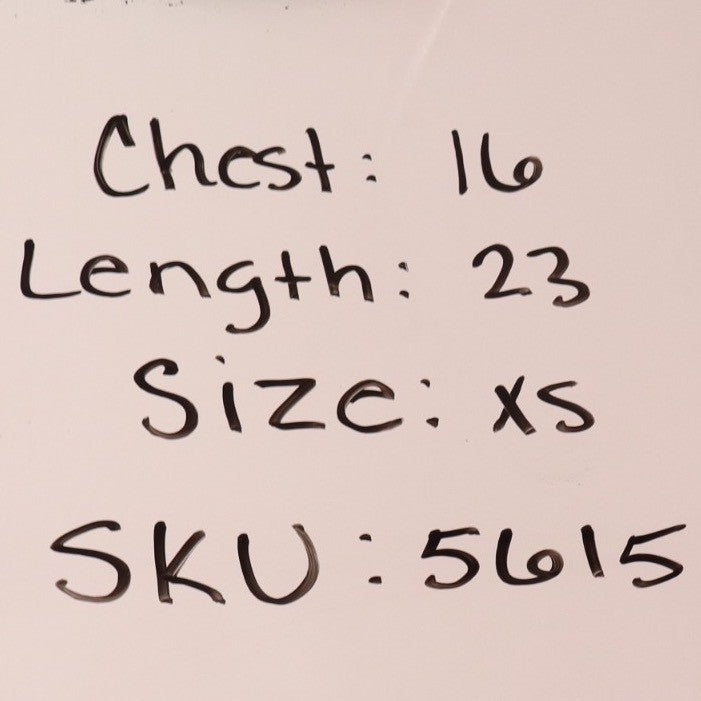 Chest: 16
Length: 23
Size: XS
SKU: 5615